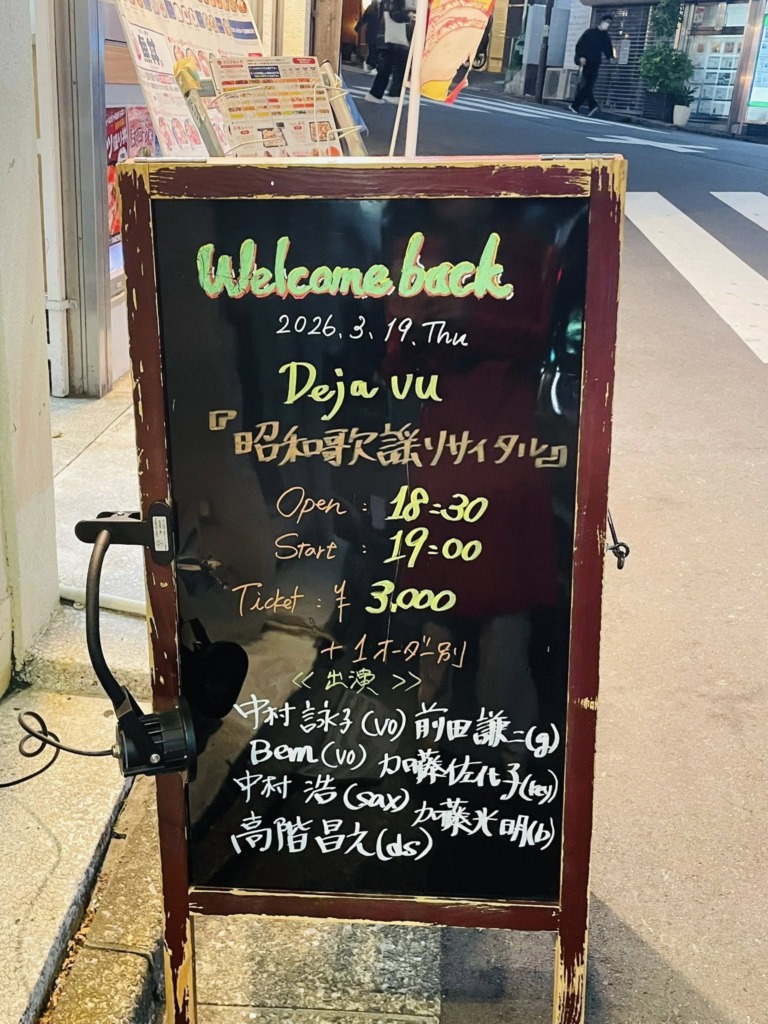 Welcome back
2026.3.19.Thu
Deja vu
『昭和歌謡リサイタル』
Open : 18:30
Start : 19:00
Ticket : ¥ 3,000
+1オーダー別
<< 出演 >>
中村 詠子(vo) 前田謙二(g)
Bem(vo) 加藤佐代子(key)
中村 浩(sax) 加藤光明(b)
高階昌之(ds)